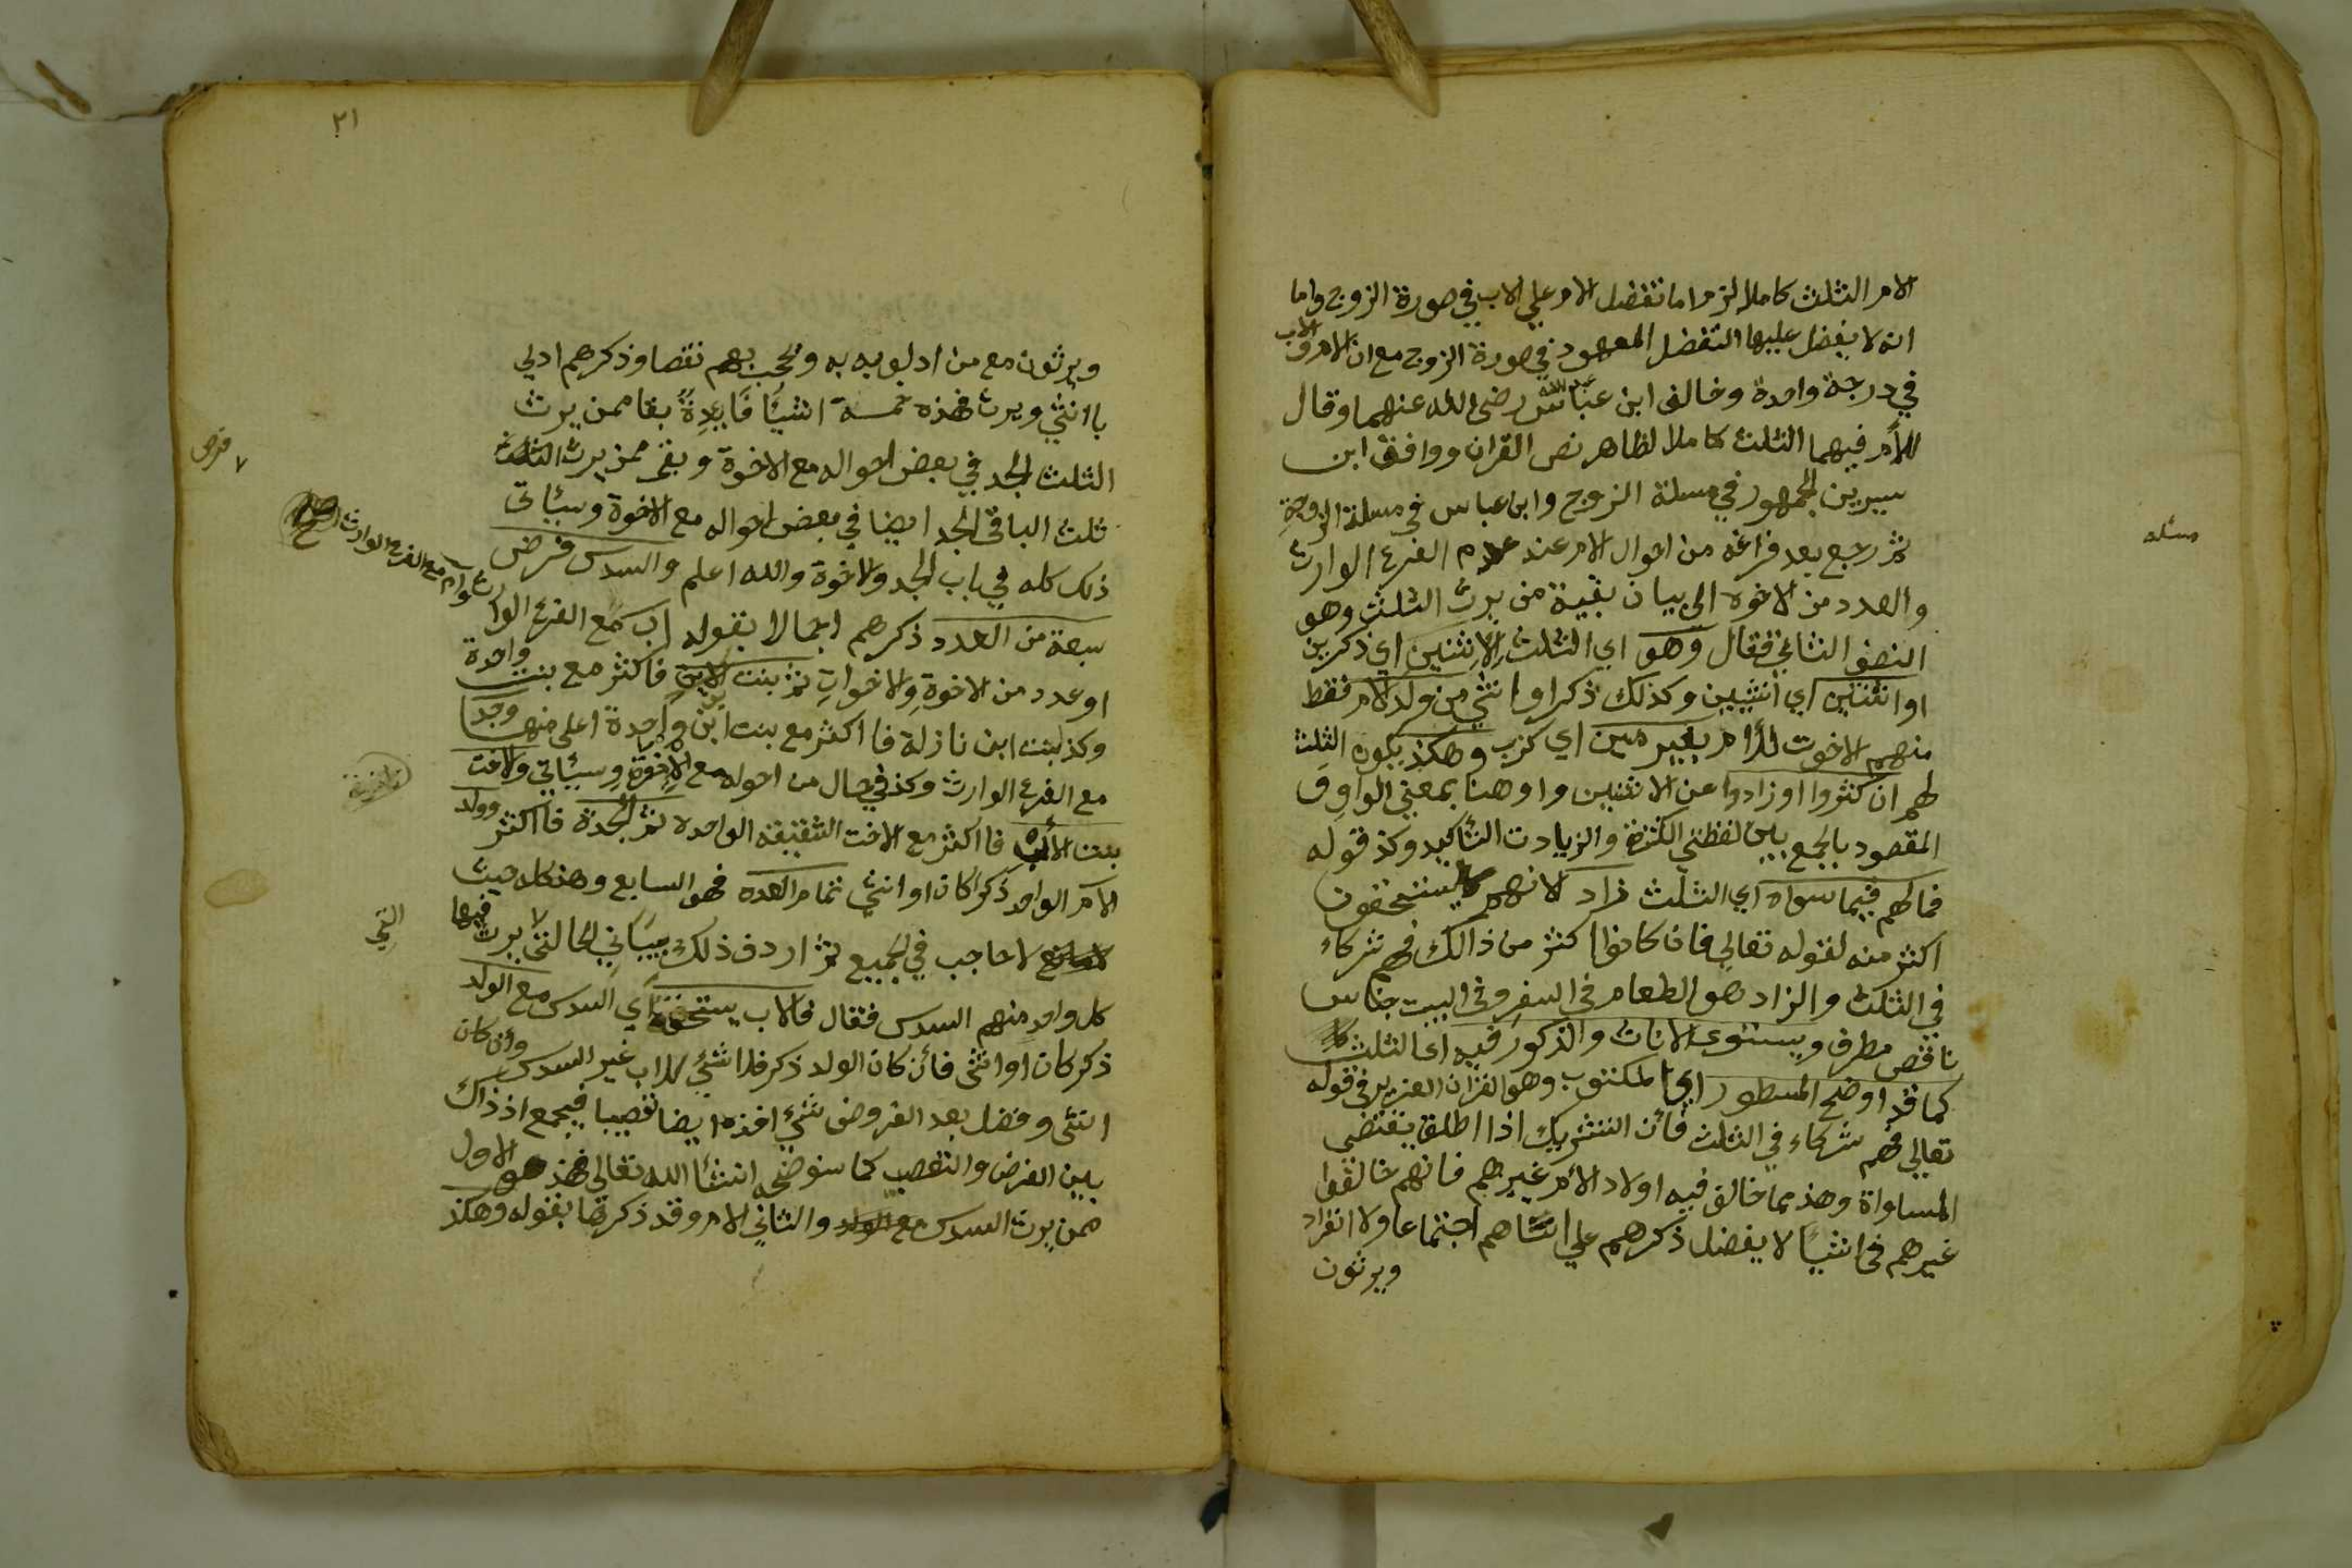 الام الثلث كاملا لزم اما تفضل الام علي الاب في صورة الزوج واما
انه لا يفضل عليها التفضل المعهود في صورة الزوج مع ان الام والاب
في درجة واحدة وخالف ابن عباس رضي الله عنهما وقال
للأم فيهما الثلث كاملا لظاهر نص القران ووافق ابن
سيرين الجمهور في مسلة الزوج وابن عباس في مسلة الزوجةِ
ثم رجع بعد فراغه من احوال الام عند عدم الفرع الوارث
مسئله
والعدد من الاخوه الي بيان بقية من يرث الثلث وهو
النصف الثاني فقال وهو اي الثلث لِلاِثنين اي ذكرين
او اثنتين اي انثيين وكذلك ذكرا وانثي من ولد الام فقط
منهم الاخوت للأم بغير مين اي كزب وهكذ يكون الثلث
لهم ان كثروا او زادوا عن الاثنين واو هنا بمعني الواو و
المقصود بالجمع بين لفظتي الكثرة والزيادت التأكيد وكذ قوله
فمالهم فيما سواه اي الثلث زاد لانهم لا يستحقون
اكثر منه لقوله تعالي فان كانوا اكثر من ذالك فهم شركاء
في الثلث والزاد هو الطعام في السفر وفي البيت جناس
ناقص مطرف ويستوي الاناث والذكور فيه اي الثلث
كما قد اوضح المسطور اي المكتوب وهو القران العزيز في قوله
تعالي فهم شركاء في الثلث فأن التشريك اذا اطلق يقتضي
المساواة وهذ مما خالف فيه اولاد الأم غيرهم فانهم خالفوا
غيرهم في اشيأ لا يفضل ذكرهم علي انثاهم اجتماعا ولا انفراد
ويرثون
٢١
ويرثون مع من ادلو به وتحجب بهم نقصا وذكرهم ادلي
باانثي ويرث فهذه خمسة اشيأ فَايِدةٌ بقا ممن يرث
الثلث الجد في بعض احواله مع الاخوة وبقى ممن يرث
ثلث الباقي الجد ايضا في بعض احواله مع الاخوة وسئاتي
ذلك كله في باب الجد والاخوة والله اعلم والسدس فرض
٧ فرض
سبعة من العدد ذكرهم اجمالا بقوله اب مع الفرع الوارث
وام مع الفرع الوارث
او عدد من الاخوةِ والاخواتِ ثم بنت الابن فاكثر مع بنت واحدة
وكذ بنت ابن نازلة فااكثر مع بنت ابن واحدة اعلي منها وجد
مع الفرع الوارث وكذ في حال من احوله مع الاخوة وسئاتي والاخت
بنت الأب فااكثر مع الاخت الشقيقه الواحده ثم الجدة فااكثر وولد
الام الواحد ذكرا كان او انثي تمام العده فهو السابع وهذ كله حيث
لا حاجب في الجميع ثم اردف ذلك ببيان الحالة التي يرث فيها
التي
كل واحد منهم السدس فقال فالاب يستحقه اي السدس مع الولد
ذكر كان او انثي فأن كان الولد ذكر فلا شئ للاب غير السدس وان كان
انثي وفضل بعد الفروض شئ اخذه ايضا تعصيبا فيجمع اذ ذاك
بين الفرض والتعصيب كما سنوضحه انشأ الله تعالي فهذ هو الاول
ممن يرث السدس مع الولد والثاني الام وقد ذكرتها بقوله وهكذ